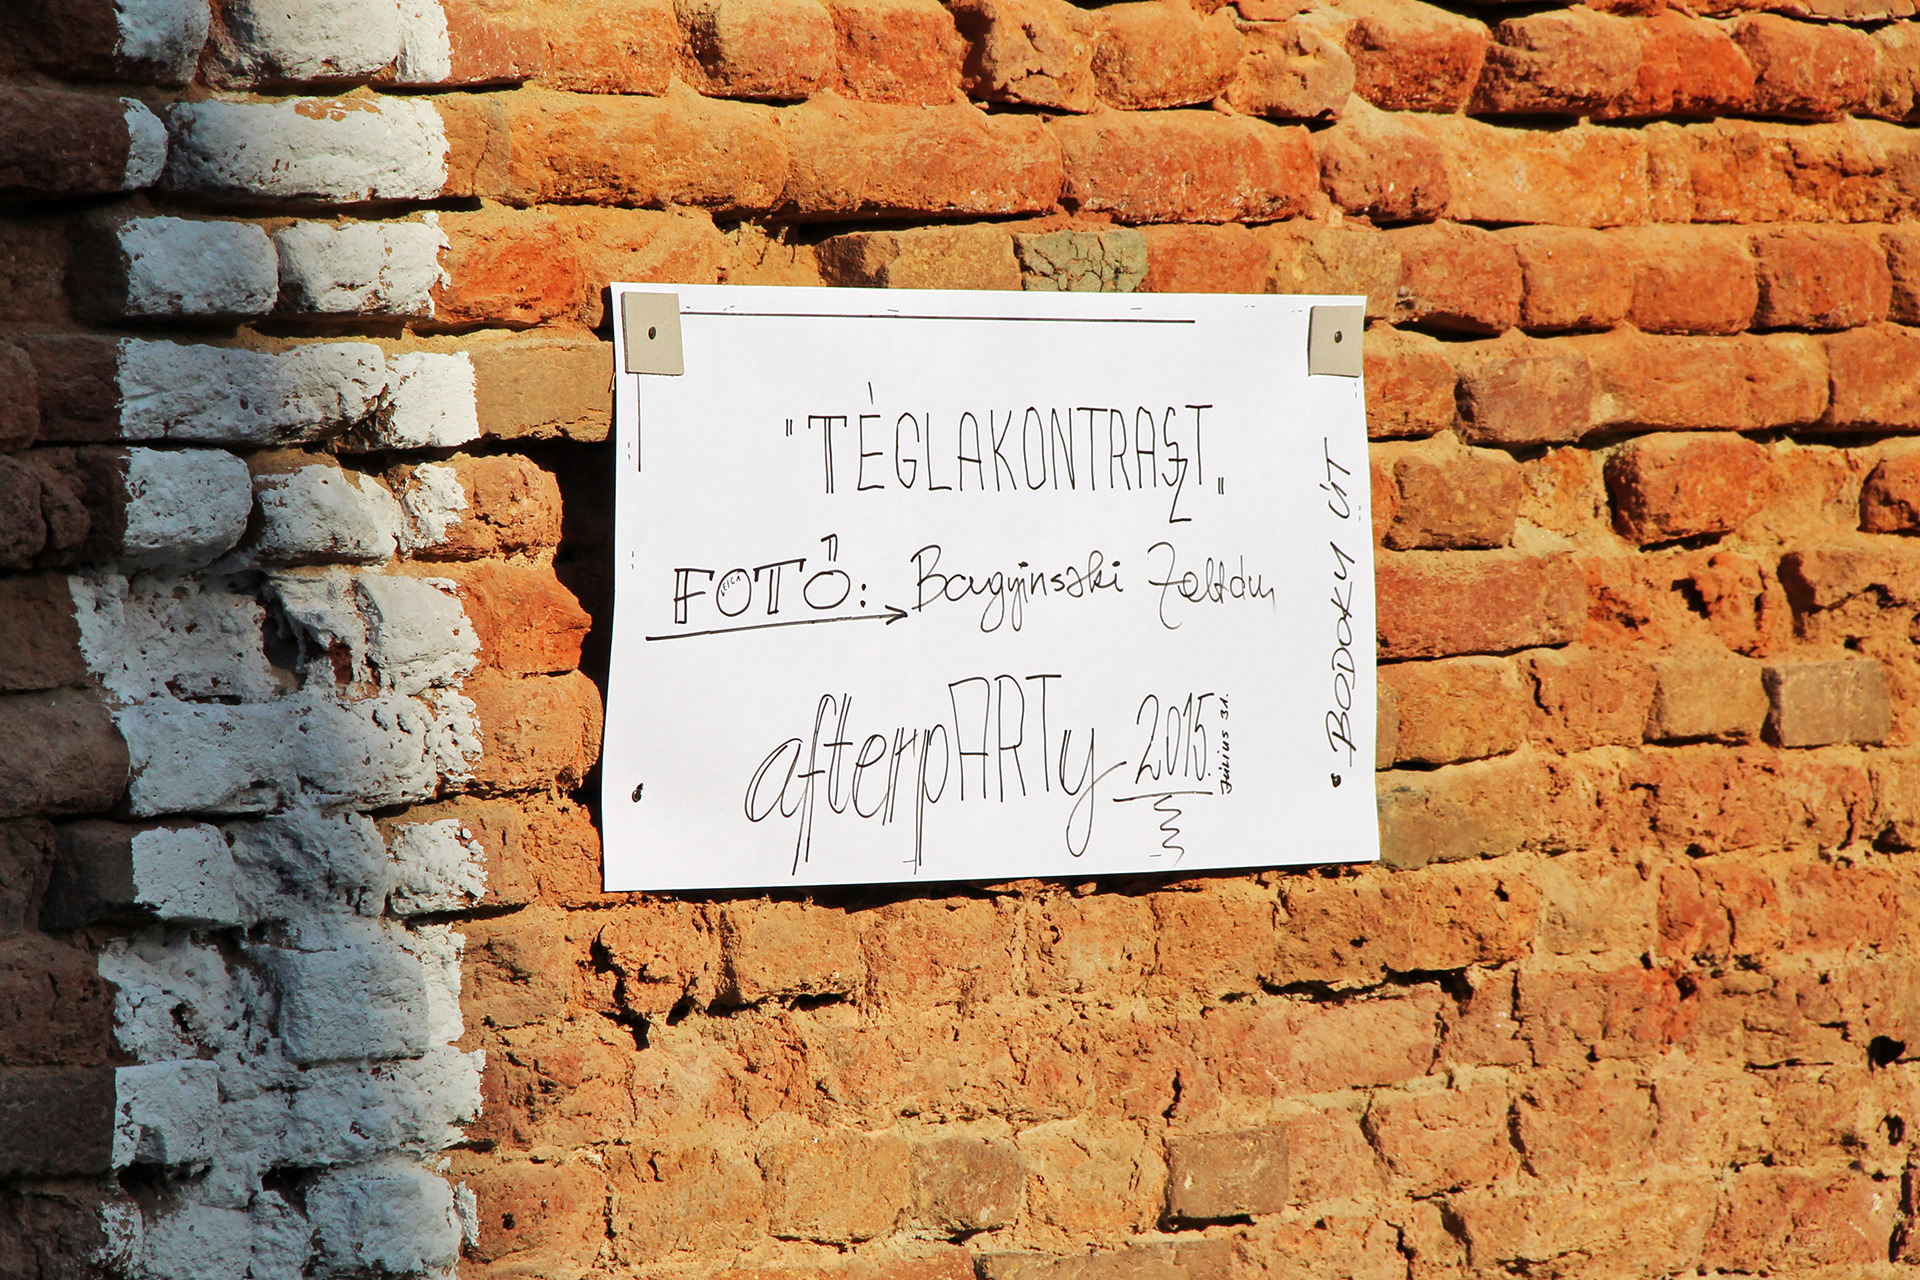 "TÉGLAKONTRASZT"
FOTÓ: Bagyinszki Zoltán
LEICA
afterpARTy 2015.
Július 31.
• BODOKY ÚT